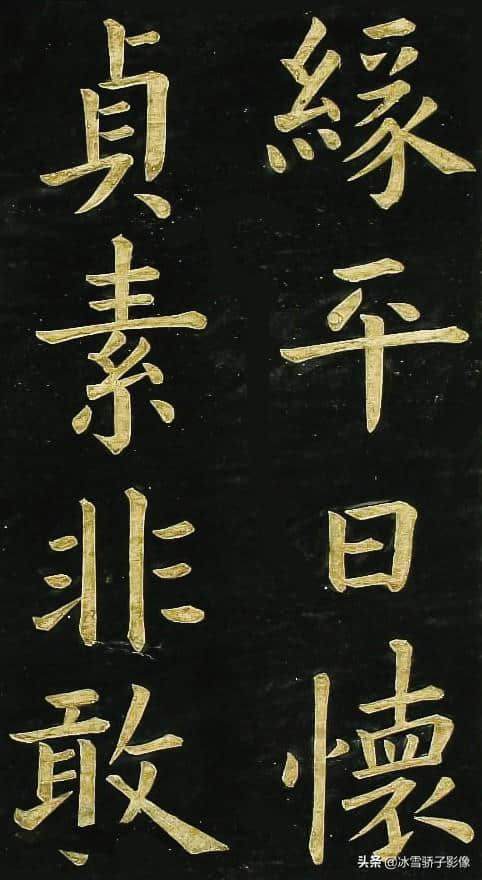 緣平日懷
貞素非敢
头条@冰雪骄子影像